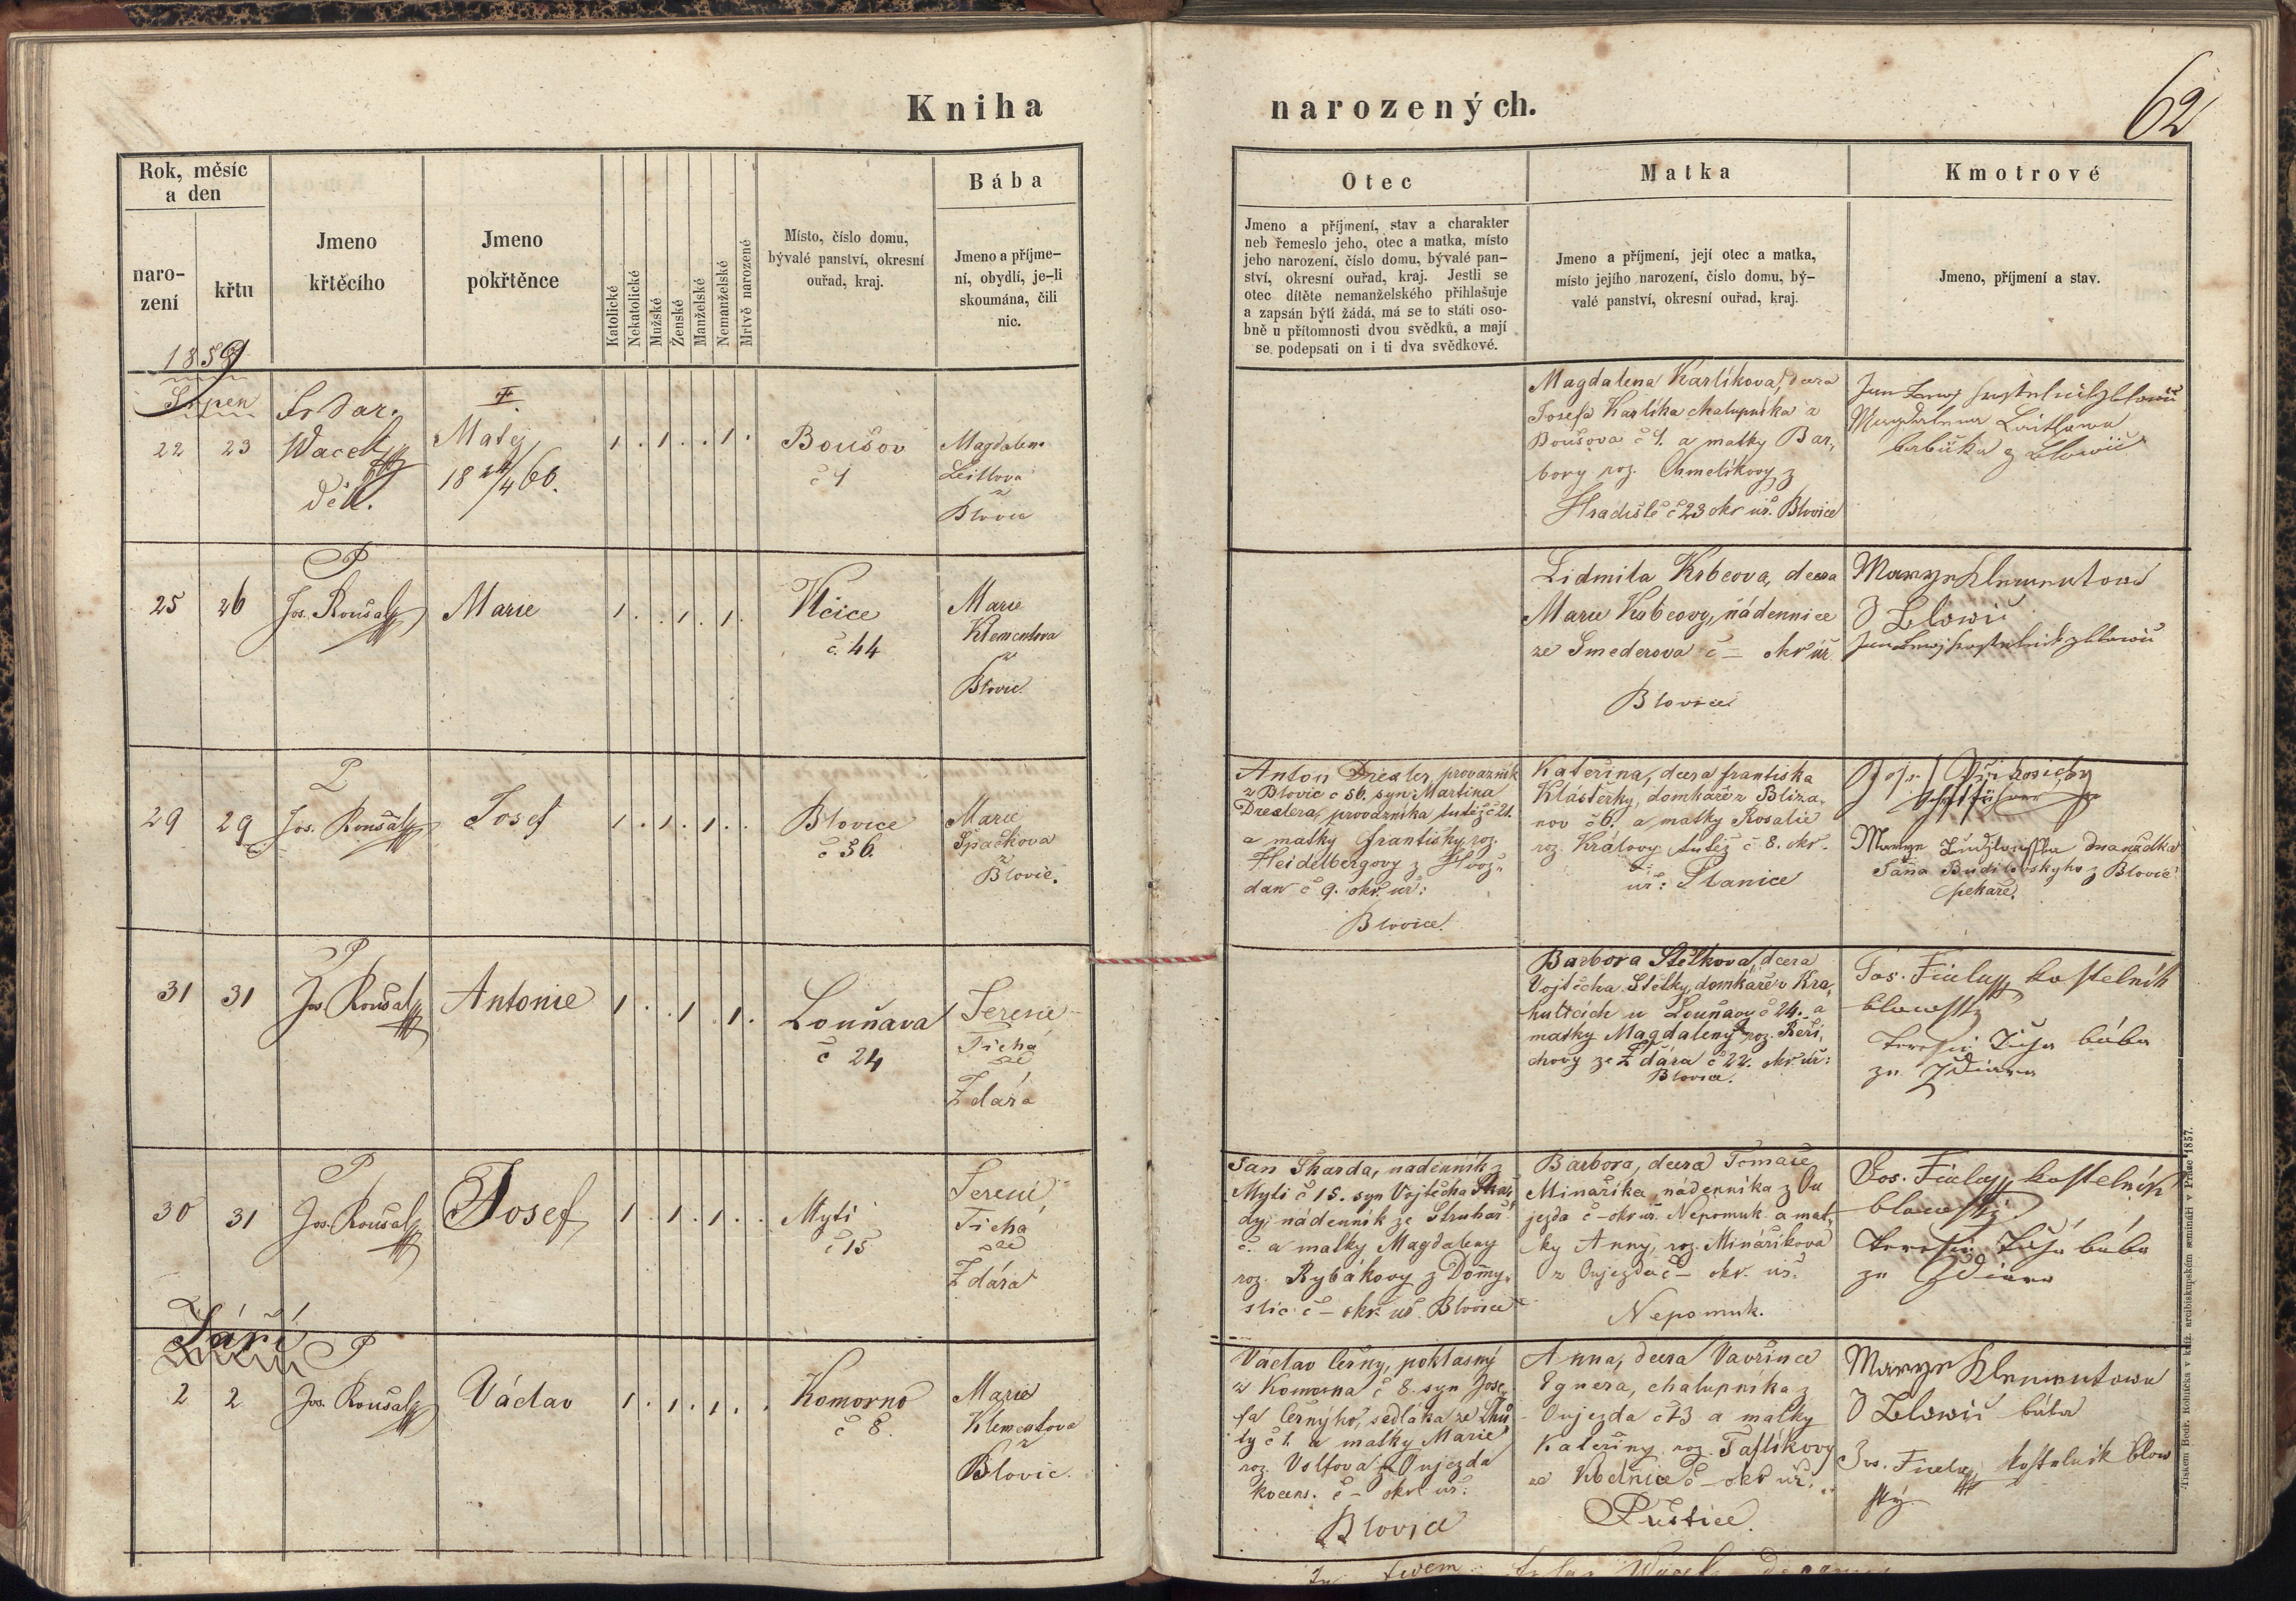 Kniha
narozených.
62
Rok, měsíc
a den
naro-
zení
křtu
Jmeno
křtěcího
Jmeno
pokřtěnce
Katolické
Nekatolické
Mužské
Ženské
Manželské
Nemanželské
Mrtvě narozené
Místo, číslo domu,
bývalé panství, okresní
ouřad, kraj.
Bába
Jmeno a příjme-
ní, obydlí, je-li
skoumána, čili
nic.
Otec
Jmeno a příjmení, stav a charakter
neb řemeslo jeho, otec a matka, místo
jeho narození, číslo domu, bývalé pan-
ství, okresní ouřad, kraj. Jestli se
otec dítěte nemanželského přihlašuje
a zapsán býti žádá, má se to státi oso-
bně u přítomnosti dvou svědků, a mají
se podepsati on i ti dva svědkové.
Matka
Jmeno a příjmení, její otec a matka,
místo jejího narození, číslo domu, bý-
valé panství, okresní ouřad, kraj.
Kmotrové
Jmeno, příjmení a stav.
1859
Srpen
22 23
Wacek
děk.
Matěj
18 24/4 60.
Boušov
č 1
Magdalena
Leitlova
z
Blovic
Magdalena Karlíkova, dcera
Josefa Karlíka chalupníka z
Boušova č 1. a matky Bar-
bory roz. Chmelíkovy z
Hradiště č 23 okr. úř. Blovice
25 26
P
Jos. Roušal
Marie
Vlčice
č. 44
Marie
Klementova
z
Blovic
Lidmila Krbcova, dcera
Marie Krbcovy, nádennice
ze Smederova č – okr úř
Blovice
Marye Klementowa
Z Blowic
29 29
P
Jos. Roušal
Josef
Blovice
č 56.
Marie
Špačkova
z
Blovic.
Anton Drexler, provazník
z Blovic č 56. syn Martina
Drexlera, provazníka tutéž č 21.
a matky Františky roz.
Heidelbergovy z Hvož-
dan č 9. okr. úř:
Blovice.
Kateřina, dcera Františka
Klášterky, domkáře z Bliža-
nov č 6. a matky Rosalie
roz. Královy tutéž č 8. okr.
úř: Planice
manželka
Jana Budilovskyho z Blovic
pekaře.
31 31
P
Jos Roušal
Antonie
Louňava
č 24
Terezie
Tichá
ze
Ždára
Barbora Stelkova, dcera
Vojtěcha Stelky, domkáře v Kra-
hulčích u Louňavy č 24. a
matky Magdaleny roz. Reři-
chovy ze Ždára č 22. okr. úř:
Blovice.
Jos. Fiala kostelník
blowský
Teresie Tichá bába
ze Zdiara
30 31
P
Jos. Roušal
Josef
Myti
č 15
Terezie
Tichá
ze
Ždára
Jan Škarda, nadenník z
Myti č 15. syn Vojtěcha Škar-
dy, nádenník ze Struhař
č. a matky Magdaleny
roz. Rybákovy z Domy-
slic č – okr. úř. Blovice
Barbora, dcera Tomáše
Minaříka, nádenníka z Ou
jezda č – okr úř. Nepomuk a mat-
ky Anny, roz. Mináříkova
z Oujezda č – okr. úř.
Nepomuk.
Jos. Fiala kostelník
blowský
Teresie Tichá bába
ze Zdiara
Září
2 2
P
Jos. Roušal
Václav
Komorno
č 8.
Marie
Klementova
z
Blovic.
Václav Černý, poklasný
z Komorna č 8. syn Jose-
fa Černýho, sedláka ze Lhů
ty č 1. a matky Marie
roz. Volfova z Oujezda
č – okr úř:
Blovice
Anna, dcera Vavřince
Egnera, chalupníka z
Oujezda č 13 a matky
Kateřiny roz. Taflíkovy
ze č – okr úř.
Přestice.
Marye Klementowa
Z Blowic bába
Jos. Fiala kostelník blow
ský
Tiskem Bedř. Rohlíčka v kníž. arcibiskupském semináři v Praze 1857.